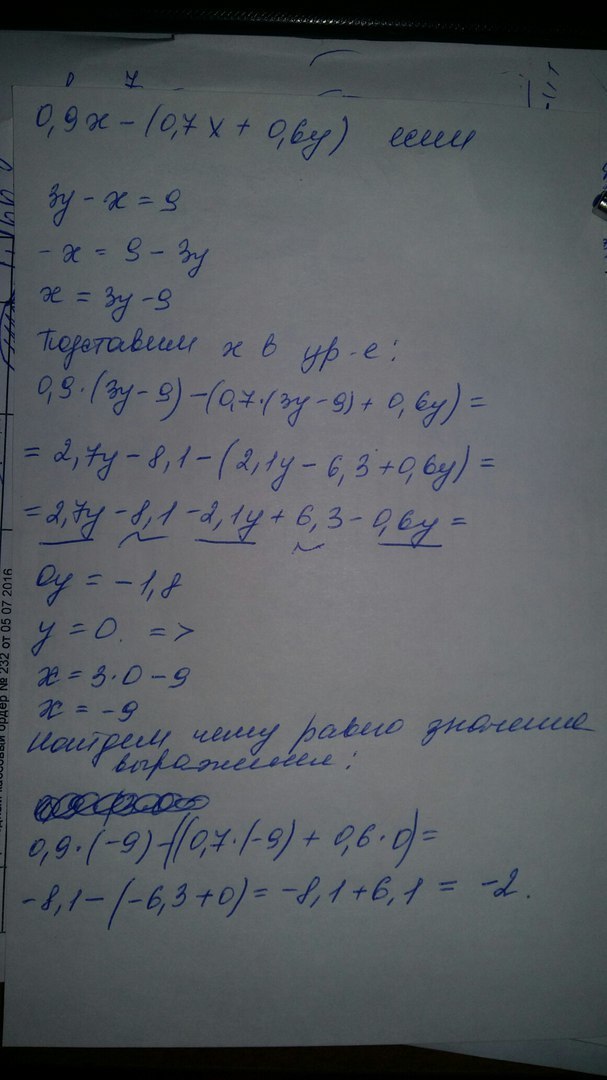 7
0,9x - (0,7x + 0,6y) если
3y - x = 9
-x = 9 - 3y
x = 3y - 9
Подставим x в ур-е:
0,9·(3y-9)-(0,7·(3y-9)+0,6y)=
= 2,7y - 8,1 - (2,1y - 6,3 + 0,6y) =
= 2,7y - 8,1 - 2,1y + 6,3 - 0,6y =
0y = -1,8
y = 0. =>
x = 3·0 - 9
x = -9
Найдем чему равно значение
выражения:
0,9·(-9)-((0,7·(-9)+0,6·0)=
-8,1-(-6,3+0)= -8,1+6,1 = -2.
ордер № 232 от 05 07 2016